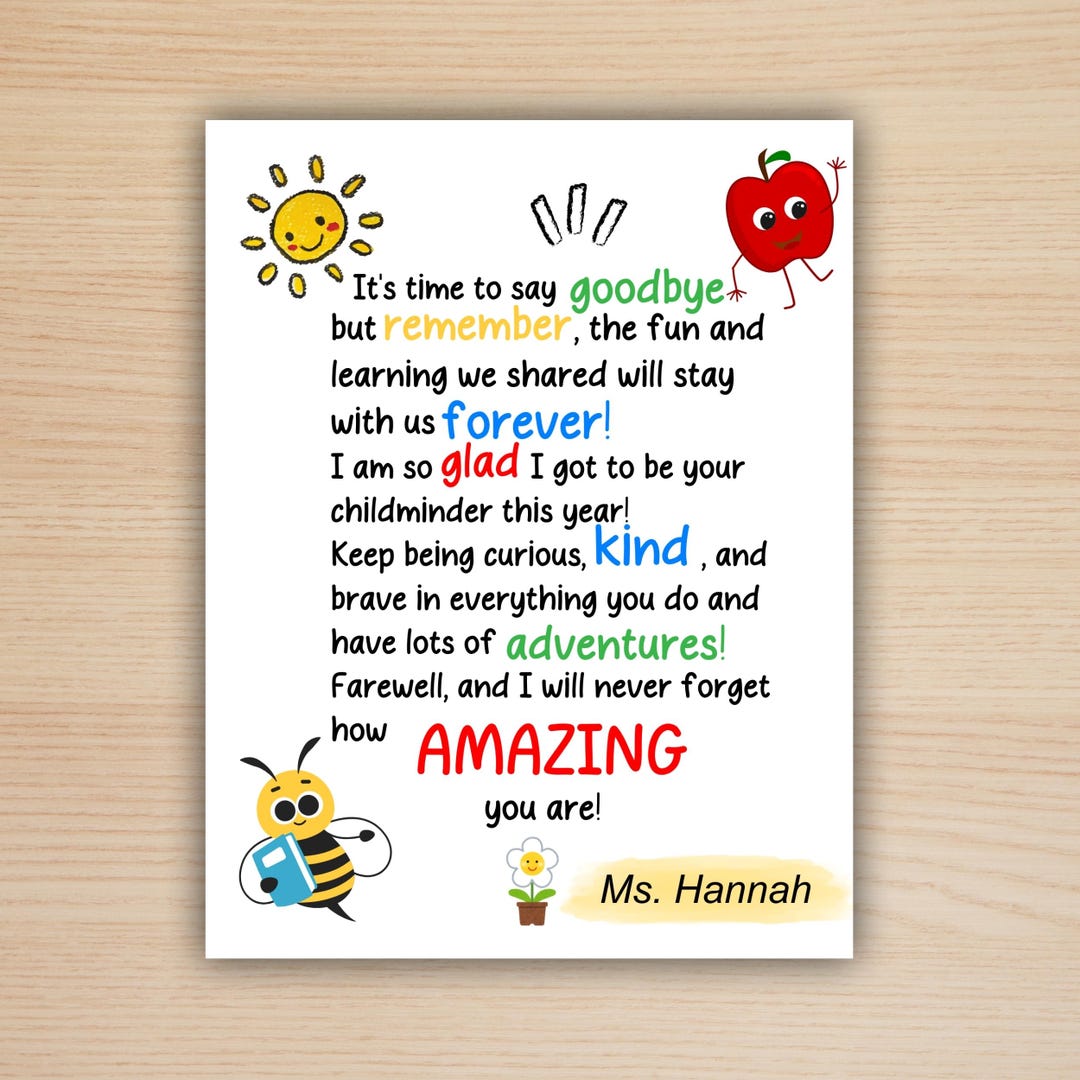 It's time to say goodbye
but remember, the fun and
learning we shared will stay
with us forever!
I am so glad I got to be your
childminder this year!
Keep being curious, kind , and
brave in everything you do and
have lots of adventures!
Farewell, and I will never forget
how AMAZING
you are!
Ms. Hannah